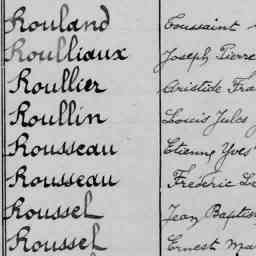 Rouland Toussaint
Roulliaux Joseph Pierre
Roullier Aristide Fra
Roullin Louis Jules
Rousseau Etienne Yves
Rousseau Frédéric Le
Roussel Jean Baptis
Roussel Ernest Ma